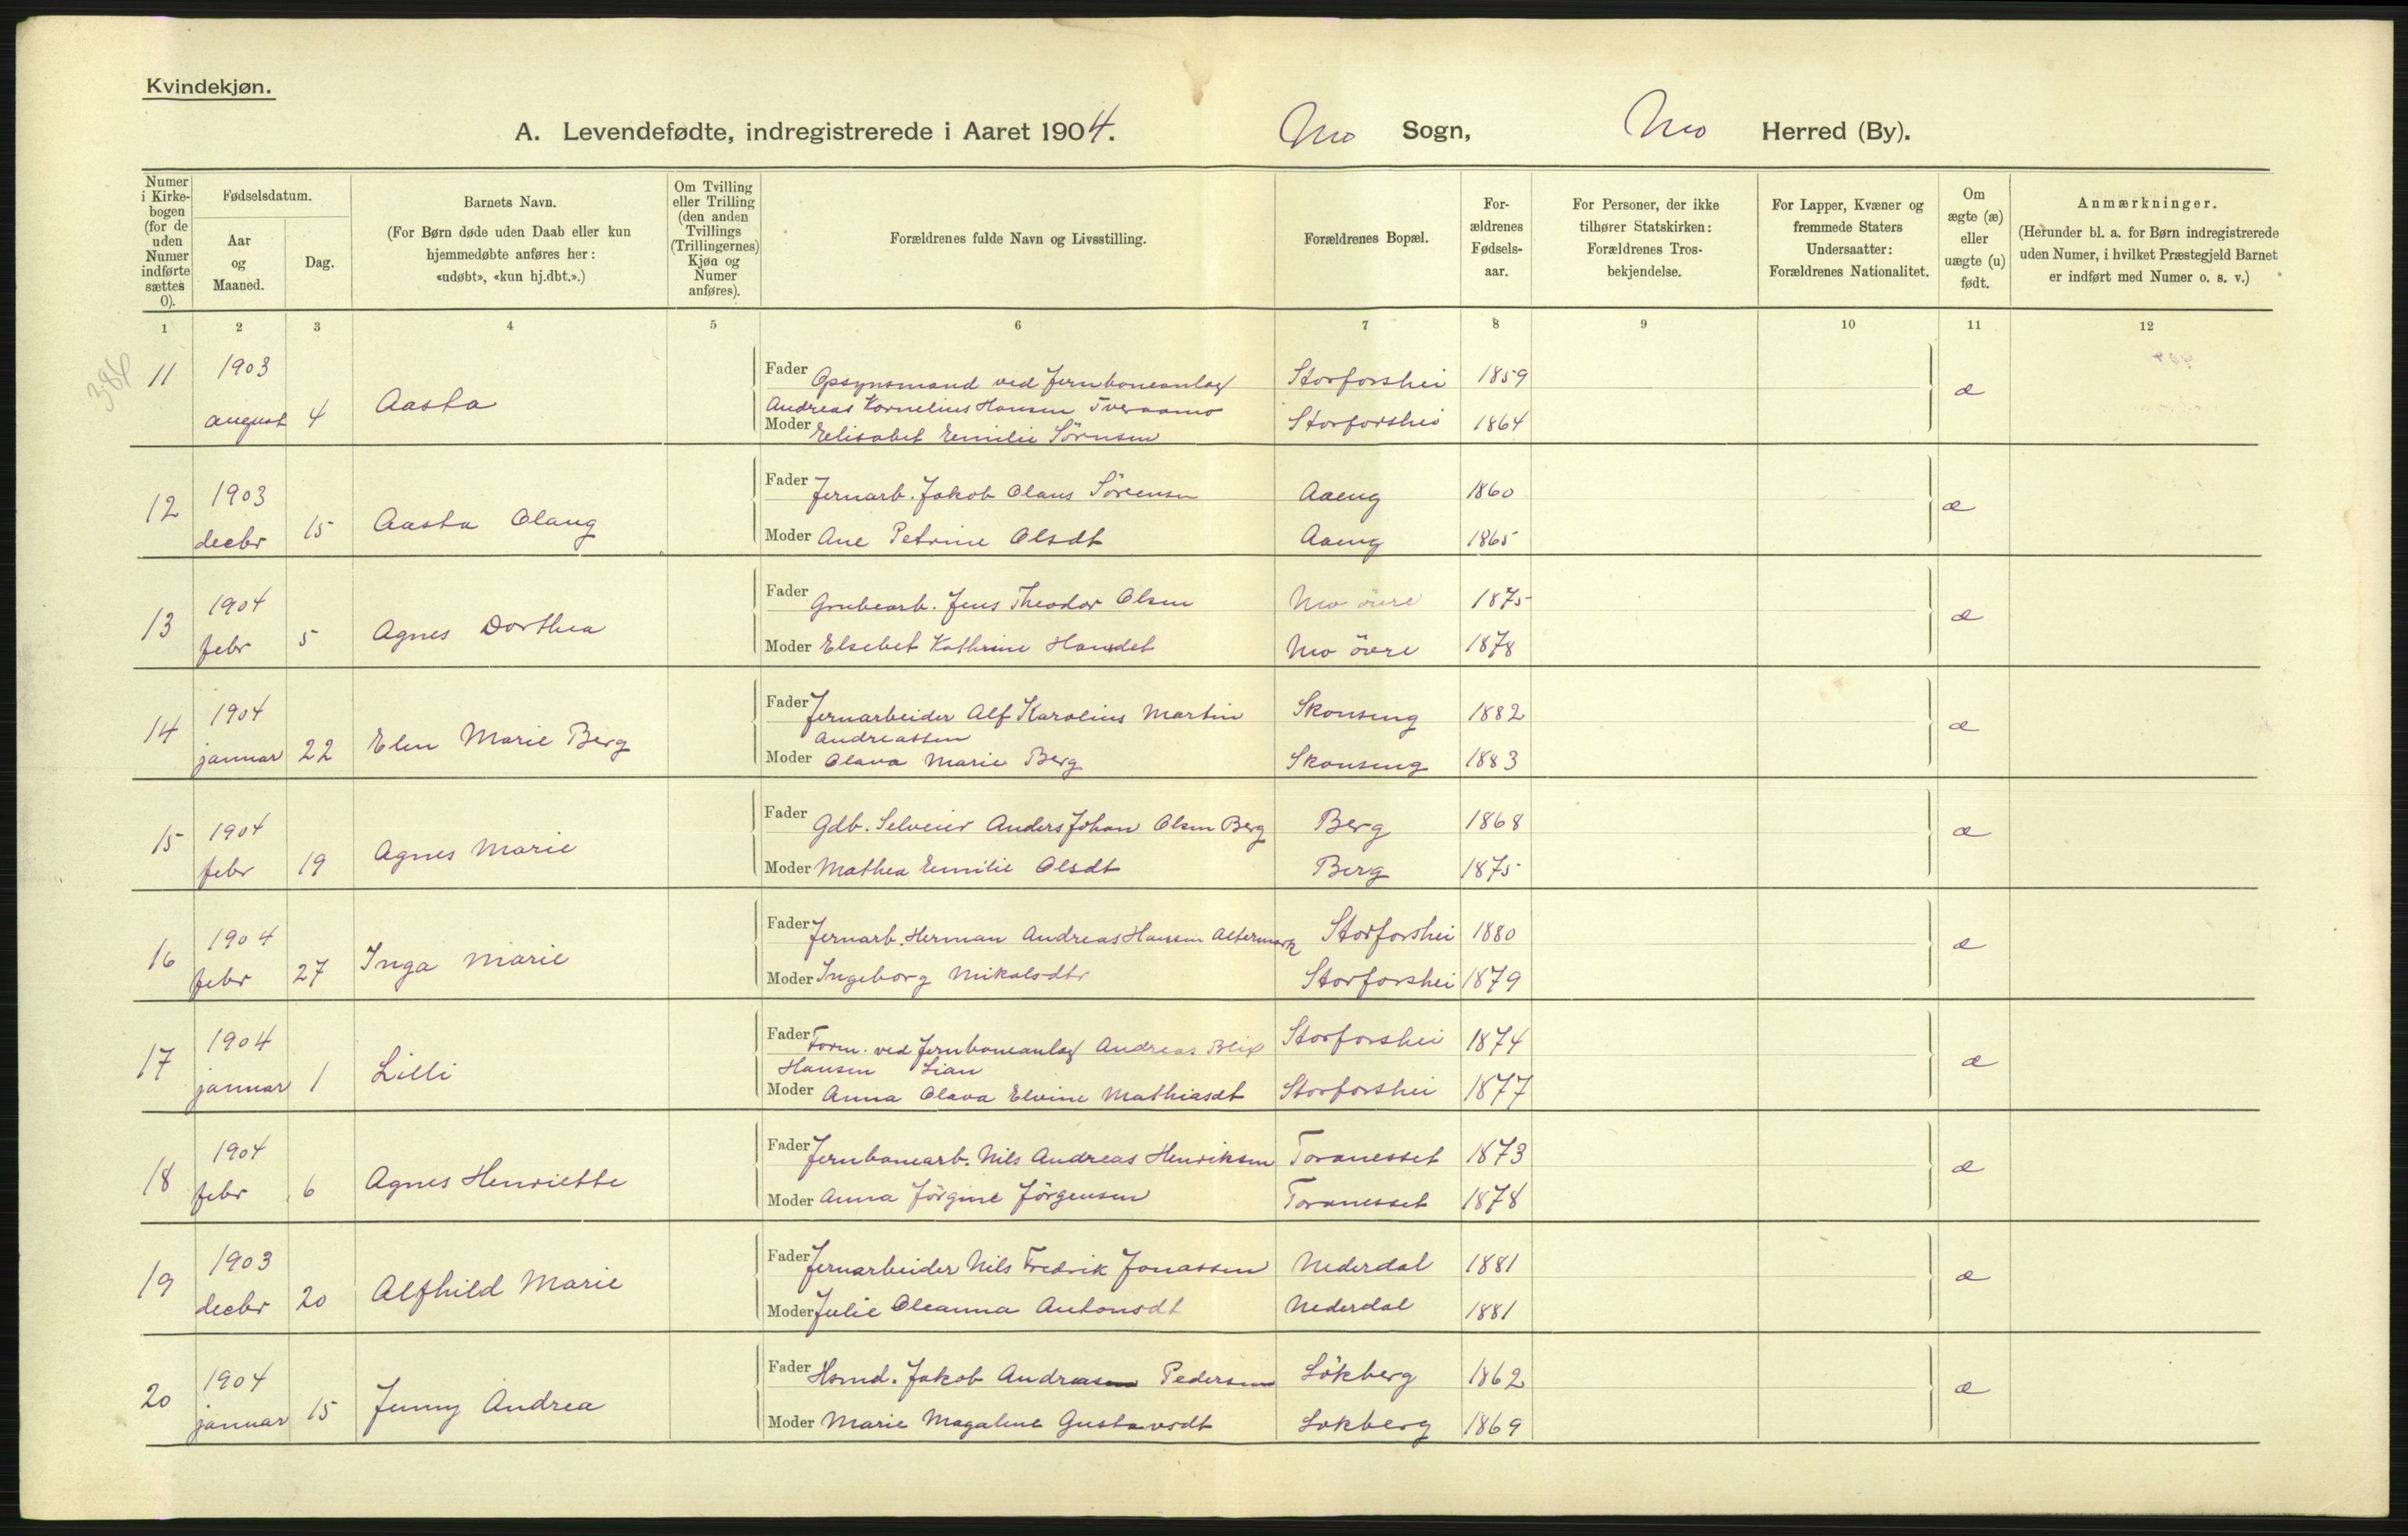 Kvindekjøn.
A. Levendefødte, indregistrerede i Aaret 1904. Mo Sogn, Mo Herred (By).
Numer i Kirkebogen (for de uden Numer indførte sættes 0).
Fødselsdatum.
Aar og Maaned.
Dag.
Barnets Navn.
(For Børn døde uden Daab eller kun hjemmedøbte anføres her: «udøbt», «kun hj.dbt.».)
Om Tvilling eller Trilling (den anden Tvillings (Trillingernes) Kjøn og Numer anføres).
Forældrenes fulde Navn og Livsstilling.
Forældrenes Bopæl.
Forældrenes Fødselsaar.
For Personer, der ikke tilhører Statskirken: Forældrenes Trosbekjendelse.
For Lapper, Kvæner og fremmede Staters Undersaatter: Forældrenes Nationalitet.
Om ægte (æ) eller uægte (u) født.
Anmærkninger.
(Herunder bl. a. for Børn indregistrerede uden Numer, i hvilket Præstegjeld Barnet er indført med Numer o. s. v.)
1 2 3 4 5 6 7 8 9 10 11 12
384
11 1903 august 4 Aasta
Fader Opsynsmand ved Jernbaneanlæg Storforshei 1859 æ
Andreas Kornelius Hansen Tveraamo
Moder Elisabet Emilie Sörnsen Storforshei 1864
12 1903 decbr 15 Aasta Olaug
Fader Jernarb. Jakob Olaus Sörensen Aaeng 1860 æ
Moder Ane Petrine Olsdt Aaeng 1865
13 1904 febr 5 Agnes Dorthea
Fader Grubearb. Jens Theodor Olsen Mo övre 1875 æ
Moder Elsebet Kathrine Hansdet Mo övre 1878
14 1904 januar 22 Elen Marie Berg
Fader Jernarbeider Alf Karolius Martin Skonseng 1882 æ
Andreassen
Moder Olava Marie Berg Skonseng 1883
15 1904 febr 19 Agnes Marie
Fader Gdb. Selveier Anders Johan Olsen Berg Berg 1868 æ
Moder Mathea Emilie Olsdt Berg 1875
16 1904 febr 27 Inga Marie
Fader Jernarb. Herman Andreas Hansen Altermark Storforshei 1880 æ
Moder Ingeborg Mikalsdtr Storforshei 1879
17 1904 januar 1 Lilli
Fader Form. ved Jernbaneanlæg Andreas Blix Storforshei 1874 æ
Hansen Lian
Moder Anna Olava Elvine Mathiasdt Storforshei 1877
18 1904 febr 6 Agnes Henriette
Fader Jernbanearb. Nils Andreas Henriksen Toranesset 1873 æ
Moder Anna Jörgine Jörgensen Toranesset 1878
19 1903 decbr 20 Alfhild Marie
Fader Jernarbeider Nils Fredrik Jonassen Nederdal 1881 æ
Moder Julie Oleanna Antonsdt Nederdal 1881
20 1904 januar 15 Jenny Andrea
Fader Hsmd. Jakob Andreasen Pedersen Lökberg 1862 æ
Moder Marie Magalene Gustavsdt Lökberg 1869